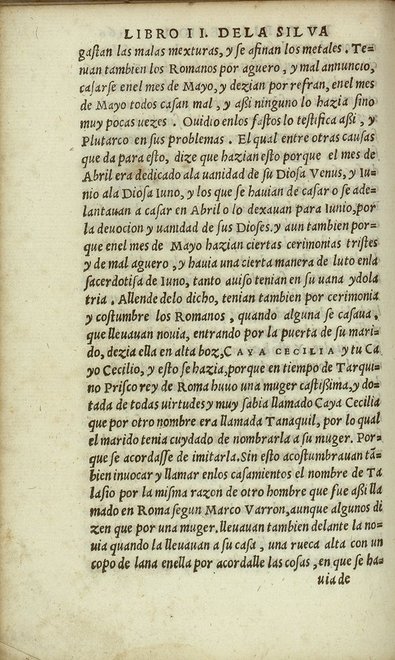 LIBRO II. DELA SILVA
gastan las malas mexturas, y se afinan los metales. Te-
nian tambien los Romanos por aguero, y mal annuncio,
casarse enel mes de Mayo, y dezian por refran, enel mes
de Mayo todos casan mal, y aßi ninguno lo hazia sino
muy pocas uezes. Ouidio enlos fastos lo testifica aßi, y
Plutarco en sus problemas. El qual entre otras causas
que da para esto, dize que hazian esto porque el mes de
Abril era dedicado ala uanidad de su Diosa Venus, y Iu-
nio ala Diosa Iuno, y los que se hauian de casar o se ade-
lantauan a casar en Abril o lo dexauan para Iunio, por
la deuocion y uanidad de sus Dioses. y aun tambien por-
que enel mes de Mayo hazian ciertas cerimonias tristes
y de mal aguero, y hauia una cierta manera de luto enla
sacerdotisa de Iuno, tanto auiso tenian en su uana ydola
tria. Allende delo dicho, tenian tambien por cerimonia
y costumbre los Romanos, quando alguna se casaua,
que lleuauan nouia, entrando por la puerta de su mari-
do, dezia ella en alta boz, CAYA CECILIA y tu Ca
yo Cecilio, y esto se hazia, porque en tiempo de Tarqui-
no Prisco rey de Roma huuo una muger castißima, y do-
tada de todas uirtudes y muy sabia llamado Caya Cecilia
que por otro nombre era llamada Tanaquil, por lo qual
el marido tenia cuydado de nombrarla a su muger. Por-
que se acordasse de imitarla. Sin esto acostumbrauan tā-
bien inuocar y llamar enlos casamientos el nombre de Ta
lasio por la misma razon de otro hombre que fue aßi lla
mado en Roma segun Marco Varron, aunque algunos di
zen que por una muger. lleuauan tambien delante la no-
uia quando la lleuauan a su casa, una rueca alta con un
copo de lana enella por acordalle las cosas, en que se ha-
uia de